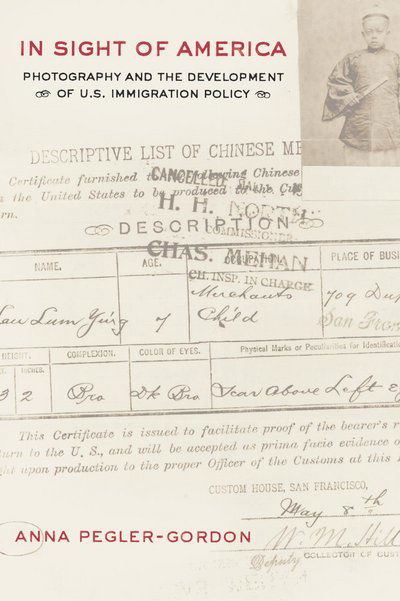 IN SIGHT OF AMERICA
PHOTOGRAPHY AND THE DEVELOPMENT
OF U.S. IMMIGRATION POLICY
DESCRIPTIVE LIST OF CHINESE ME
Certificate furnished to following Chinese
the United States to be produced to the Cu
rn.
CANCELLED
H. H. NORTH
COMMISSIONER
DESCRIPTION
CHAS. MEHAN
CH. INSP. IN CHARGE
NAME. AGE. OCCUPATION PLACE OF BUSI
Lum Ying 7 Merchants Child 709 Du
San Fran
HEIGHT. COMPLEXION. COLOR OF EYES. Physical Marks or Peculiarities for Identificatio
INCHES.
3 2 Bro Dk Bro Scar Above Left Ey
This Certificate is issued to facilitate proof of the bearer's r
turn to the U. S., and will be accepted as prima facie evidence o
ght upon production to the proper Officer of the Customs at this
CUSTOM HOUSE, SAN FRANCISCO,
May 8th
ANNA PEGLER-GORDON
W. M. Hill
Deputy COLLECTOR OF CUST